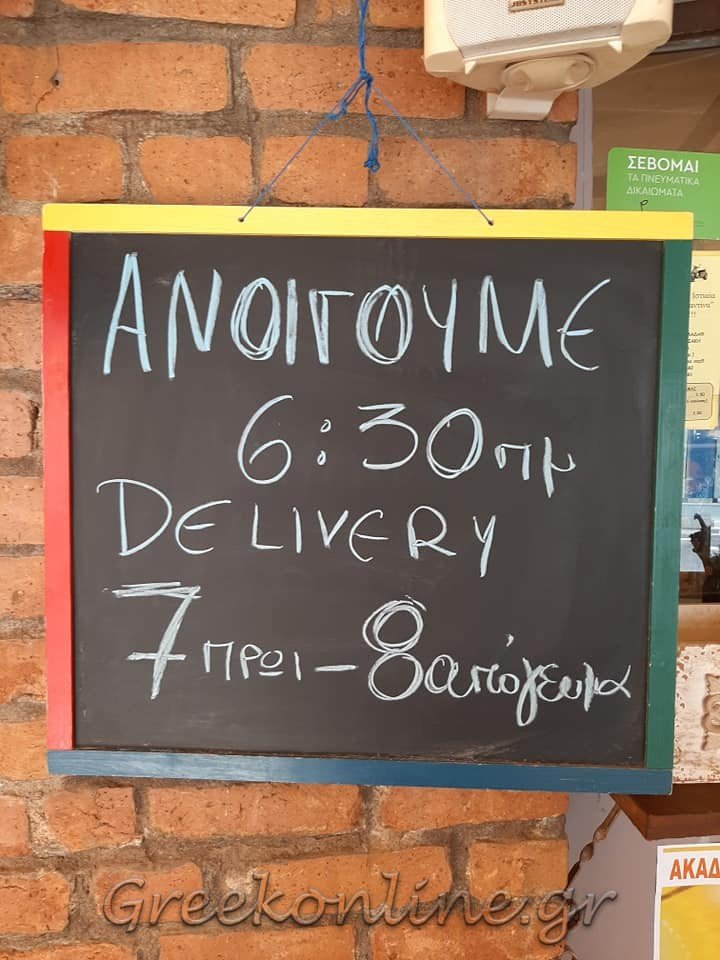 ΣΕΒΟΜΑΙ
ΤΑ ΠΝΕΥΜΑΤΙΚΑ
ΔΙΚΑΙΩΜΑΤΑ
ΑΝΟΙΓΟΥΜΕ
6:30 πμ
DELIVERY
7 ΠΡΩΙ – 8 απόγευμα
ΑΚΑΔ
Greekonline.gr